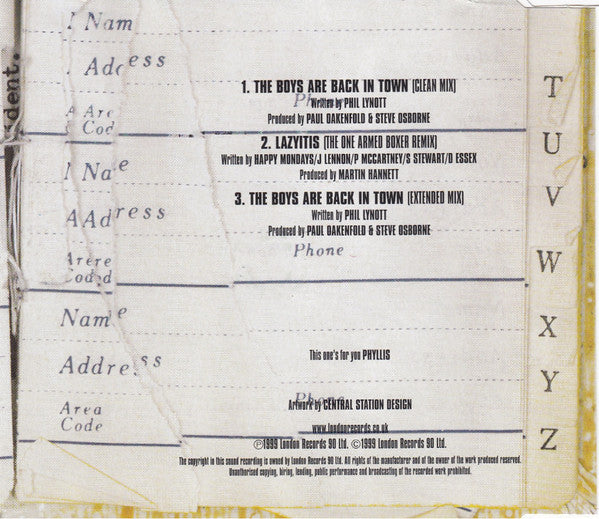 Nam
Address
ident.
1. THE BOYS ARE BACK IN TOWN (CLEAN MIX)
Written by PHIL LYNOTT
Produced by PAUL OAKENFOLD & STEVE OSBORNE
Area
Cod
2. LAZYITIS (THE ONE ARMED BOXER REMIX)
Written by HAPPY MONDAYS/J LENNON/P MCCARTNEY/S STEWART/D ESSEX
Produced by MARTIN HANNETT
N Na e
3. THE BOYS ARE BACK IN TOWN (EXTENDED MIX)
Written by PHIL LYNOTT
Produced by PAUL OAKENFOLD & STEVE OSBORNE
AAdress
Phone
Name
This one's for you PHYLLIS
Address
Artwork by CENTRAL STATION DESIGN
Area
Code
www.londonrecords.co.uk
℗1999 London Records 90 Ltd. ©1999 London Records 90 Ltd.
The copyright in this sound recording is owned by London Records 90 Ltd. All rights of the manufacturer and of the owner of the work produced reserved.
Unauthorised copying, hiring, lending, public performance and broadcasting of the recorded work prohibited.
T
U
V
W
X
Y
Z